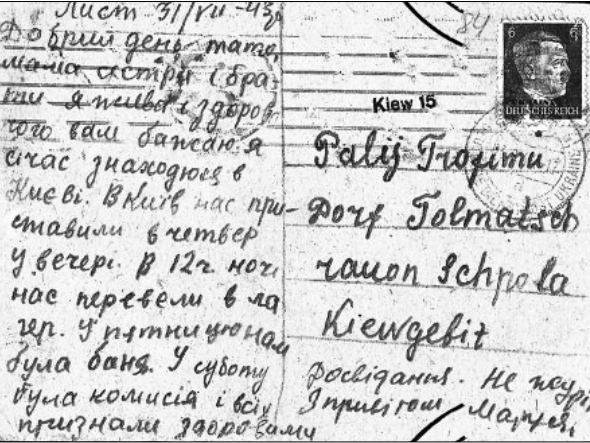 Лист 31/VII-43р
Добрий день тато,
мама сестри і бра-
ти я жива і здоров
чого вам бажаю. я
січас знаходюся в
Києві. В Київ нас при-
ставили в четвер
у вечері. В 12ч. ночі
нас перевели в ла
гер. У пятницю нам
була баня. У суботу
була комисія і всіх
признали здоровими
84
6 6
DEUTSCHES REICH
Kiew 15
UKRAINE
Palij Trofimu
Dorf Tolmatsch
rauon Schpola
Kiewgebit
Досвідання. Не журі
З привітом